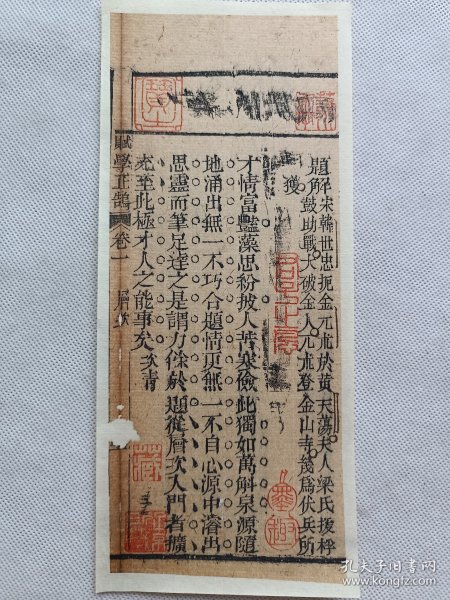 題解宋韓世忠扼金兀朮於黃天蕩夫人梁氏援桴
鼓助戰大破金人兀朮登金山寺幾為伏兵所
獲
才情富豔藻思紛披人苦寒儉此獨如萬斛泉源隨
地涌出無一不巧合題情更無一不自心源中濬出
思靈而筆足達之是謂力餘於題從層次入門者擴
充至此極才人之能事矣次青
賦學正鵠 卷一 層次
藏
孔夫子旧书网
www.kongfz.com